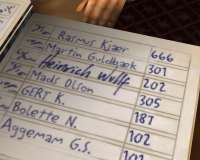 Rasmus Kjær 666
Martin Guldbæk 301
Heinrich Wulff 202
Mads Olson 305
GERT K. 187
Bolette N. 102
Aggemam G.S. 102